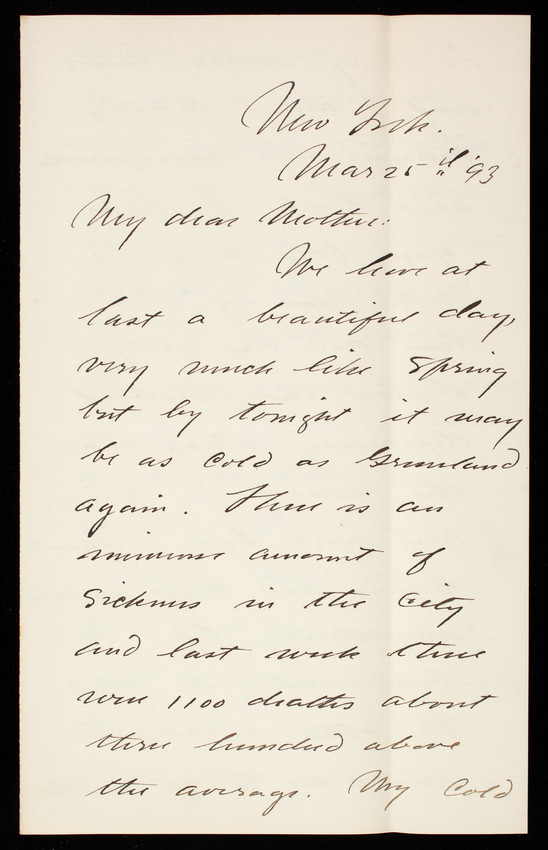 New York.
Mar 25th '93
My dear Mother:
We have at
last a beautiful day,
very much like Spring
but by tonight it may
be as cold as Greenland
again. There is an
immense amount of
Sickness in the City
and last week there
were 1100 deaths about
three hundred above
the average. My Cold